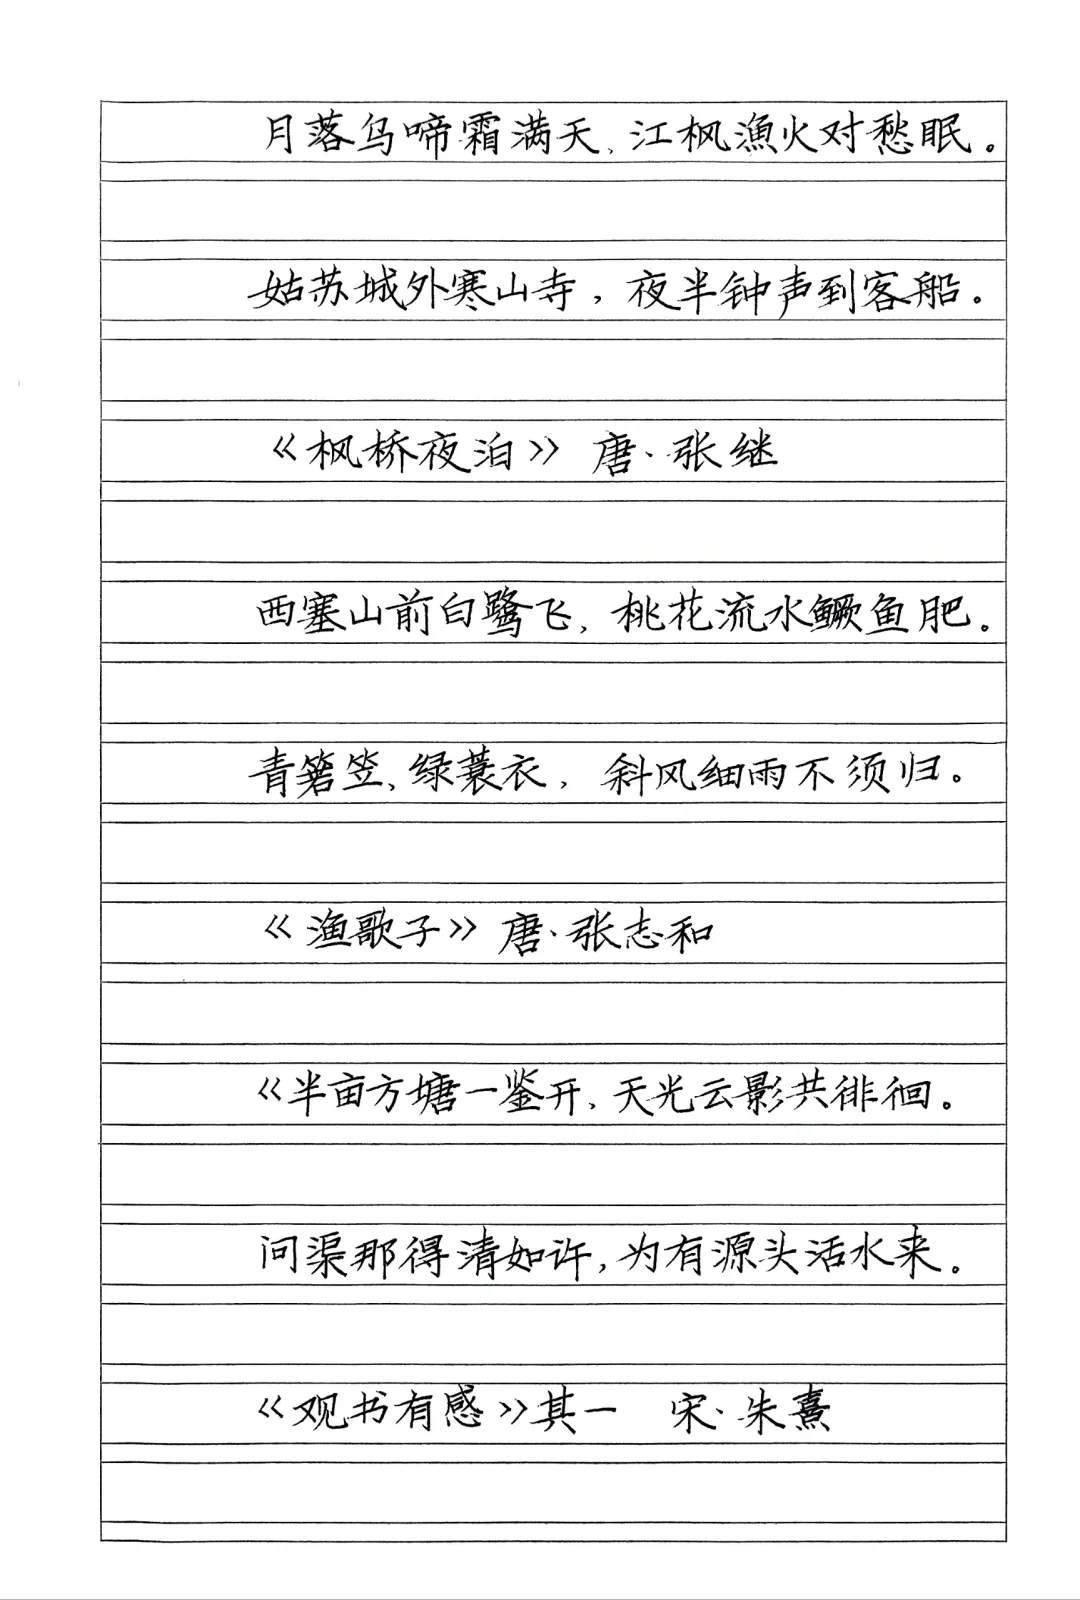 月落乌啼霜满天、江枫漁火对愁眠。
姑苏城外寒山寺，夜半钟声到客船。
《枫桥夜泊》唐·张继
西塞山前白鹭飞，桃花流水鳜鱼肥。
青箬笠、绿蓑衣，斜风细雨不须归。
《渔歌子》唐·张志和
《半亩方塘一鉴开、天光云影共徘徊。
问渠那得清如许，为有源头活水来。
《观书有感》其一 宋·朱熹